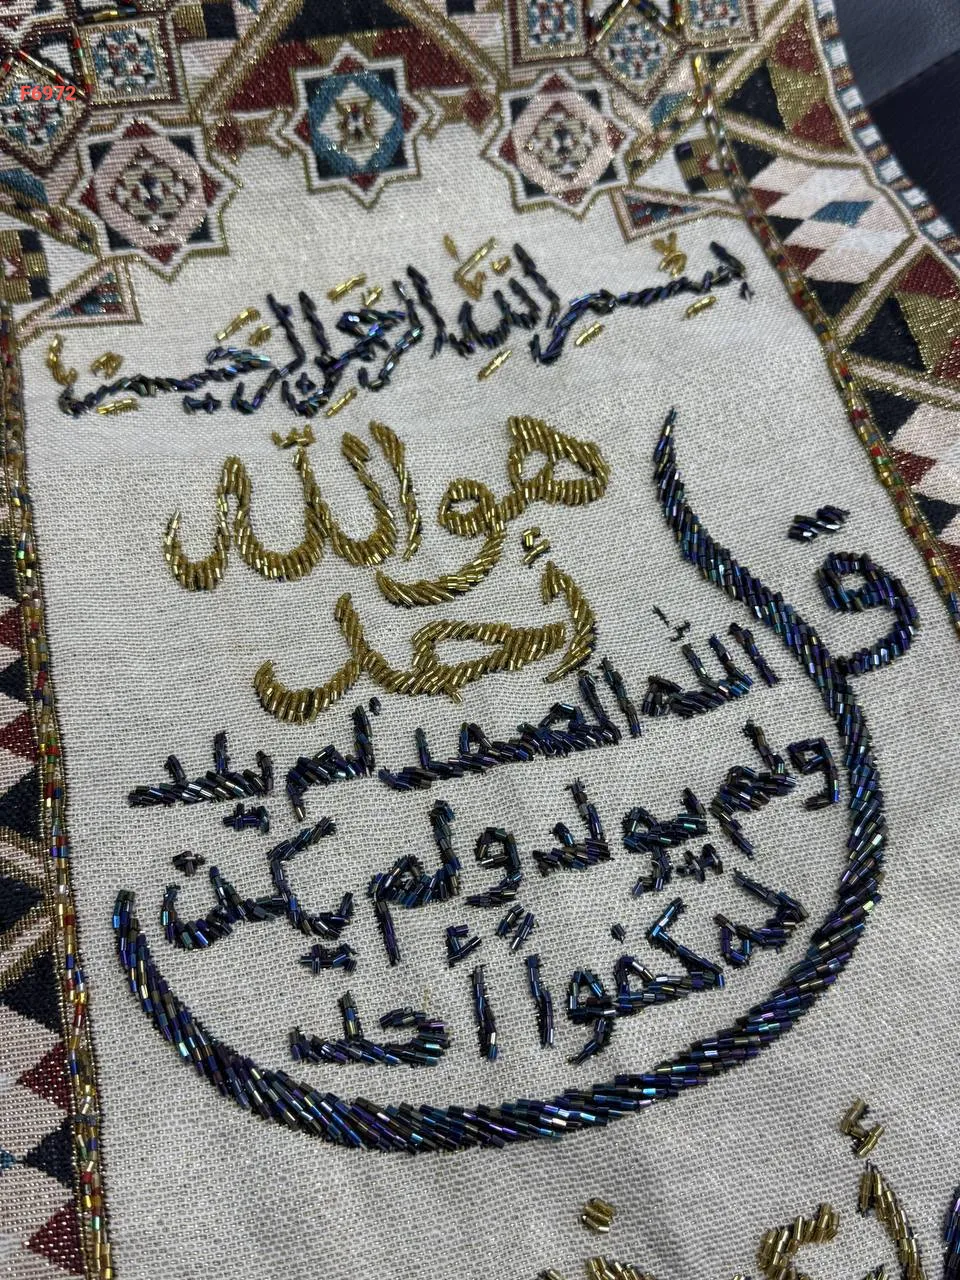 F6972
بسم الله الرحمن الرحيم
قل هو الله
أحد
الله الصمد لم يلد
ولم يولد ولم يكن
له كفوا احد